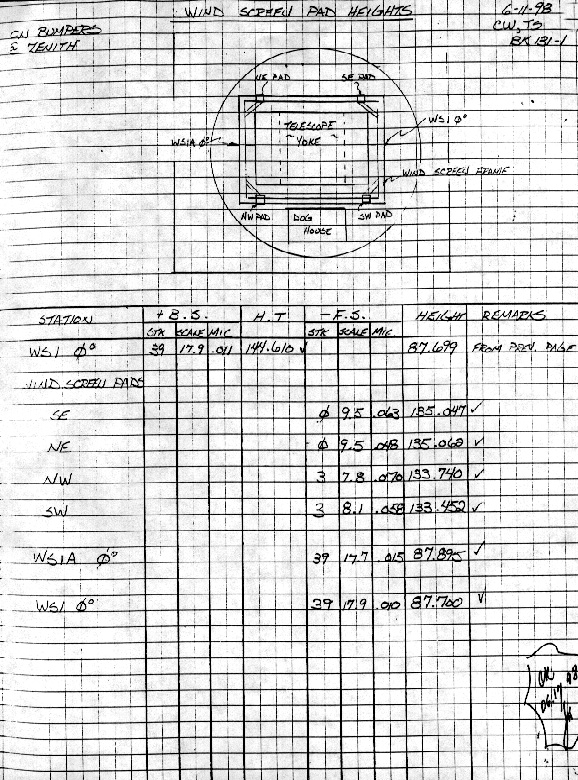 WIND SCREEN PAD HEIGHTS
6-11-98
CW, TS
BK 131-1
ON BUMPERS
@ ZENITH
NE PAD
SE PAD
WS1A Ø°
TELESCOPE
YOKE
WS1 Ø°
WIND SCREEN FRAME
NW PAD
DOG
HOUSE
SW PAD
STATION + B.S. H.T - F.S. HEIGHT REMARKS
STK SCALE MIC STK SCALE MIC
WS1 Ø° 39 17.9 .011 144.610 ✓ 87.699 FROM PREV. PAGE
WIND SCREEN PADS
SE Ø 9.5 .063 135.047 ✓
NE Ø 9.5 .048 135.062 ✓
NW 3 7.8 .070 133.740 ✓
SW 3 8.1 .058 133.452 ✓
WS1A Ø° 39 17.7 .015 87.895 ✓
WS1 Ø° 39 17.9 .010 87.700 ✓
OK